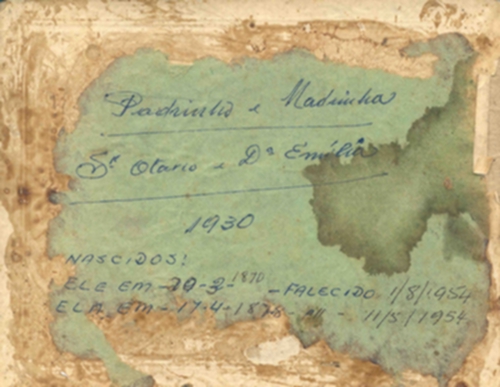 Padrinho e Madrinha
Sr. Otavio e Dª Emília
1930
NASCIDOS:
ELE EM - 20-3-1870 - FALECIDO 1/8/1954
ELA EM - 17-4-1878 - " - 11/5/1954